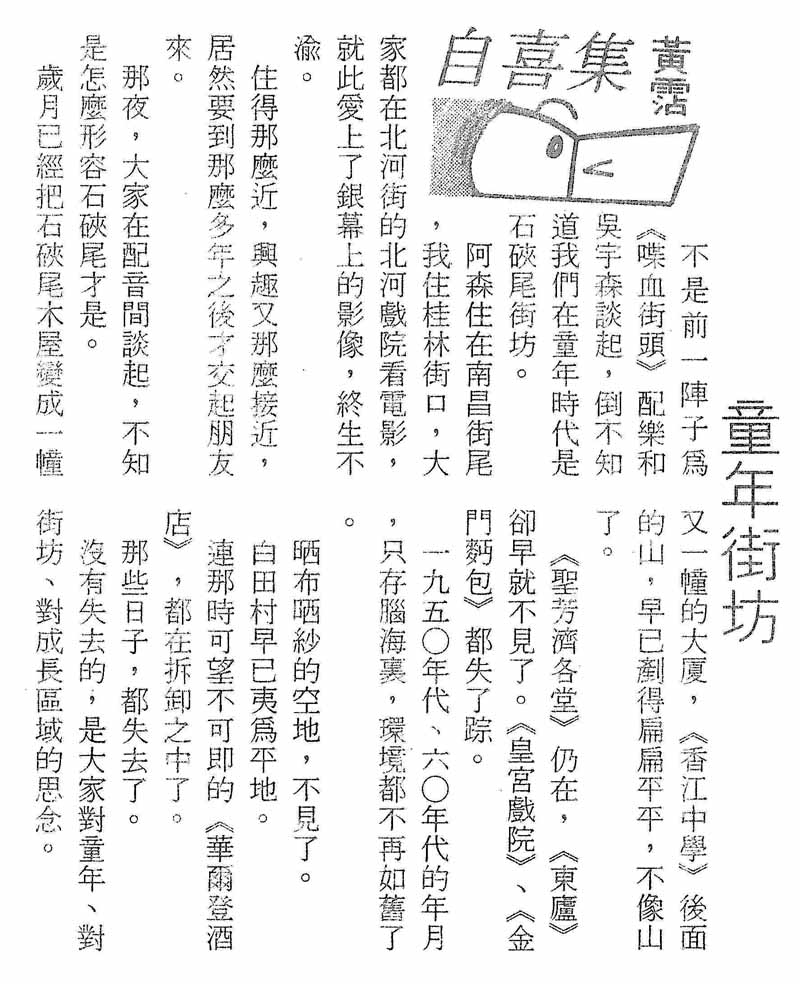 童年街坊
自喜集
黃霑
不是前一陣子爲
《喋血街頭》配樂和
吳宇森談起，倒不知
道我們在童年時代是
石硤尾街坊。
阿森住在南昌街尾
，我住桂林街口，大
家都在北河街的北河戲院看電影，
就此愛上了銀幕上的影像，終生不
渝。
住得那麼近，興趣又那麼接近，
居然要到那麼多年之後才交起朋友
來。
那夜，大家在配音間談起，不知
是怎麼形容石硤尾才是。
歲月已經把石硤尾木屋變成一幢
又一幢的大廈，《香江中學》後面
的山，早已剷得扁扁平平，不像山
了。
《聖芳濟各堂》仍在，《東廬》
卻早就不見了。《皇宮戲院》、《金
門麪包》都失了踪。
一九五〇年代、六〇年代的年月
，只存腦海裏，環境都不再如舊了
。
晒布晒紗的空地，不見了。
白田村早已夷爲平地。
連那時可望不可即的《華爾登酒
店》，都在拆卸之中了。
那些日子，都失去了。
沒有失去的，是大家對童年、對
街坊、對成長區域的思念。